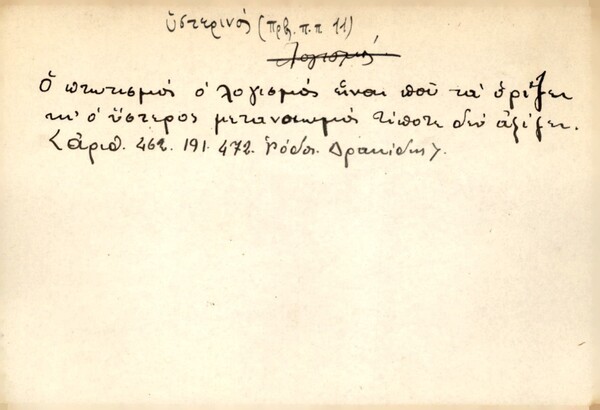 ὑστερινός (πρβ. π.π 11)
λογισμός
Ὁ πτωτισμὸς ὁ λογισμὸς εἶναι ποῦ τὰ ὁρίζει
κι' ὁ ὕστερος μετανοιωμὸς τίποτε δὲν ἀξίζει.
<ἀριθ. 462. 191. 472. Ῥόδος. Δρακίδης>.